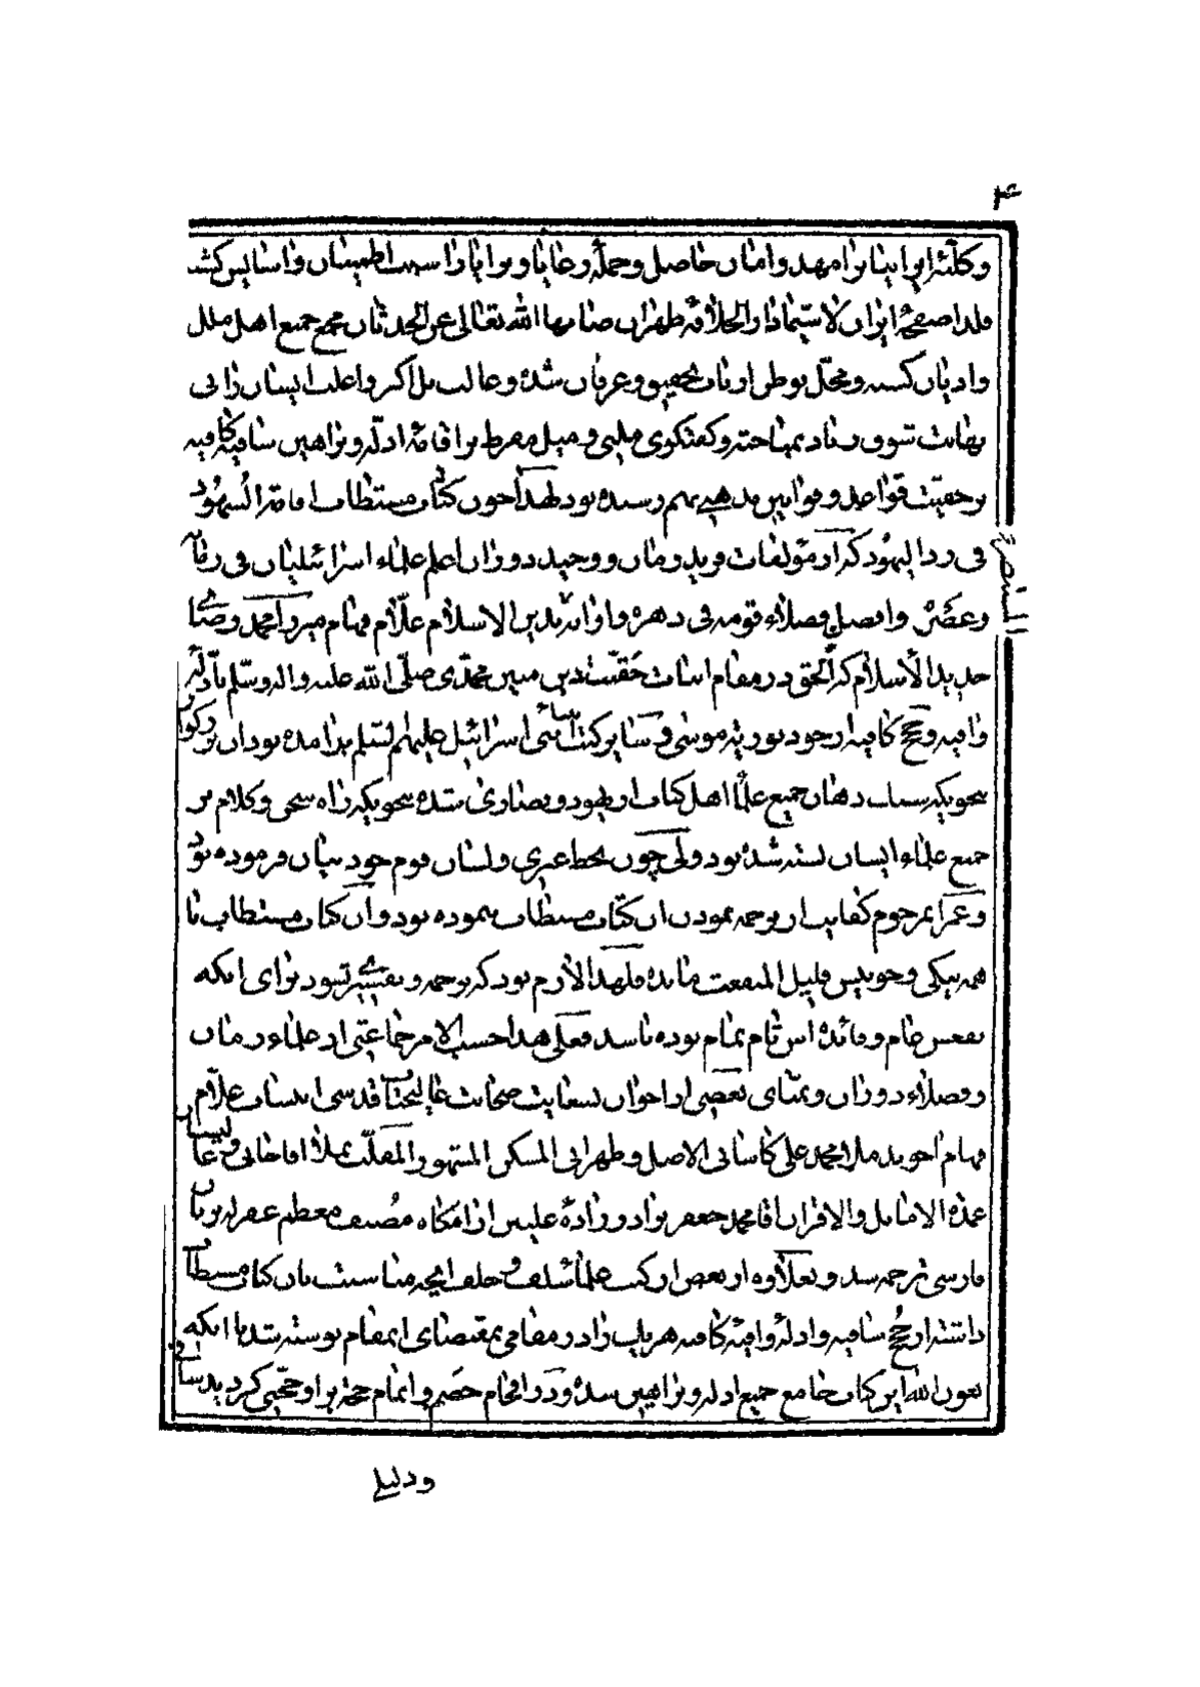 ۴
و کافّهٔ ایرانیانرا مهد و امان حاصل و جمله رعایا و برایا را سبب اطمینان و آسایش کشته
فلذا صفحهٔ ایران لا سیّما دار الخلافهٔ طهران صانها الله تعالی عن الحدثان مجمع جمیع اهل ملل
و ادیان کشته و محلّ توطن ارباب تحقیق و عرفان شده و غالب بل اکثر و اغلب ایشان را بی
نهایت شوق زیاد بمباحثه و کفتکوی ملیتی و میل مفرط بر اقامهٔ ادلّه و براهین شافیه کافیه
بر حقیّت قواعد و قوانین مذهبی بهم رسیده بود لهذا چون کتاب مستطاب اقامة الشهود
فی رد الیهود که از مؤلفات فرید زمان و وحید دوران اعلم علماء اسرائیلیان فی زمانه
و عصره و افضل فضلاء قومه فی دهره و اوانه بدین الاسلام علّام فهام میرزا محمد رضای
جدید الاسلام که الحق در مقام اثبات حقیّت دین مبین محمّدی صلّی الله علیه و آله و سلّم با ادلّه
وافیه و حجج کافیه از خود توریة موسی و سایر کتب انبیای بنی اسرائیل علیهم السّلم بر آمده بود آن بزرکوار
بنحویکه اسباب دهان جمیع علما اهل کتاب از یهود و نصاری شده بنحویکه راه سخن و کلام بر
جمیع علماء ایشان بسته شده بود ولی چون بخط عبری و لسان قوم خود بیان فرموده بود
و عمر آنمرحوم کفایت از ترجمه نمودن آن کتاب مستطاب ننموده بود و آن کتاب مستطاب با
همه نیکی و خوبیش قلیل المنفعت مانده فلهذا لازم بود که ترجمه و تفسیر شود برای اینکه
نفعش عام و فائدهٔ اش تام تمام بوده باشد فعلی هذا حسب الامر جماعتی از علماء زمان
و فضلاء دوران و تمنّای بعضی از اخوان بسعایت صحابت عالیجناب قدسی انتساب علّام
فهام اخوند ملا محمد علی کاشانی الاصل و طهرانی المسکن المشهور و الملقّب بملا اقاجانی و عالیشان
عمدة الاماثل و الاقران اقا محمد جعفر برادرزادهٔ علیین آرامکاه مصنف معظم غفر له بزبان
فارسی ترجمه شد و بعلاوه از بعض از کتب علما سلف و خلف آنچه مناسبت بآن کتاب مستطاب
داشته از حجج شافیه و ادلهٔ وافیهٔ کافیه هر یک را در مقامی بمقتضای المقام نوشته شد تا اینکه
بعون الله این کتاب جامع جمیع ادله و براهین شده و در افحام خصم و اتمام حجة بر او حجّتی کردید
و دلیلی